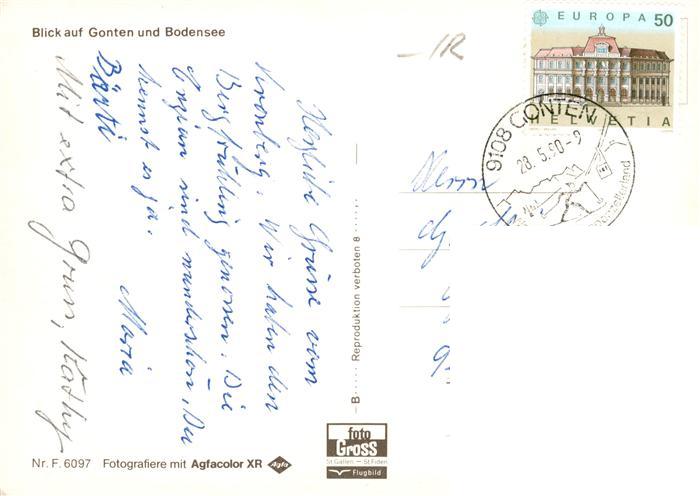 Blick auf Gonten und Bodensee
Herzliche Grüsse vom
Kronberg. Wir haben den
Bergfrühling genossen. Die
Enzian sind wunderschön, Du
kennst es ja.
Bärti Maria
Mit extra Gruss, Käthy
Nr. F. 6097 Fotografiere mit Agfacolor XR Agfa
—B····· Reproduktion verboten 8 ·····
foto
Gross
St Gallen – St Fiden
Flugbild
EUROPA 50
HELVETIA
9108 GONTEN
28.5.90-9
Herrn